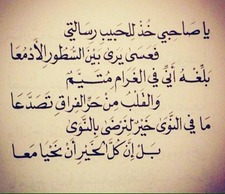 يا صاحبي خُذ للحبيب رسالتي
فعسى يرى بين السُّطورِ الأدمُعا
بلِّغهُ أنّي في الغرام مُتيَّمٌ
والقلبُ من حرِّ الفراقِ تصدَّعا
ما في النَّوى خيرٌ لنرضى بالنَّوى
بل إنَّ كلَّ الخيرِ أن نحيا معا